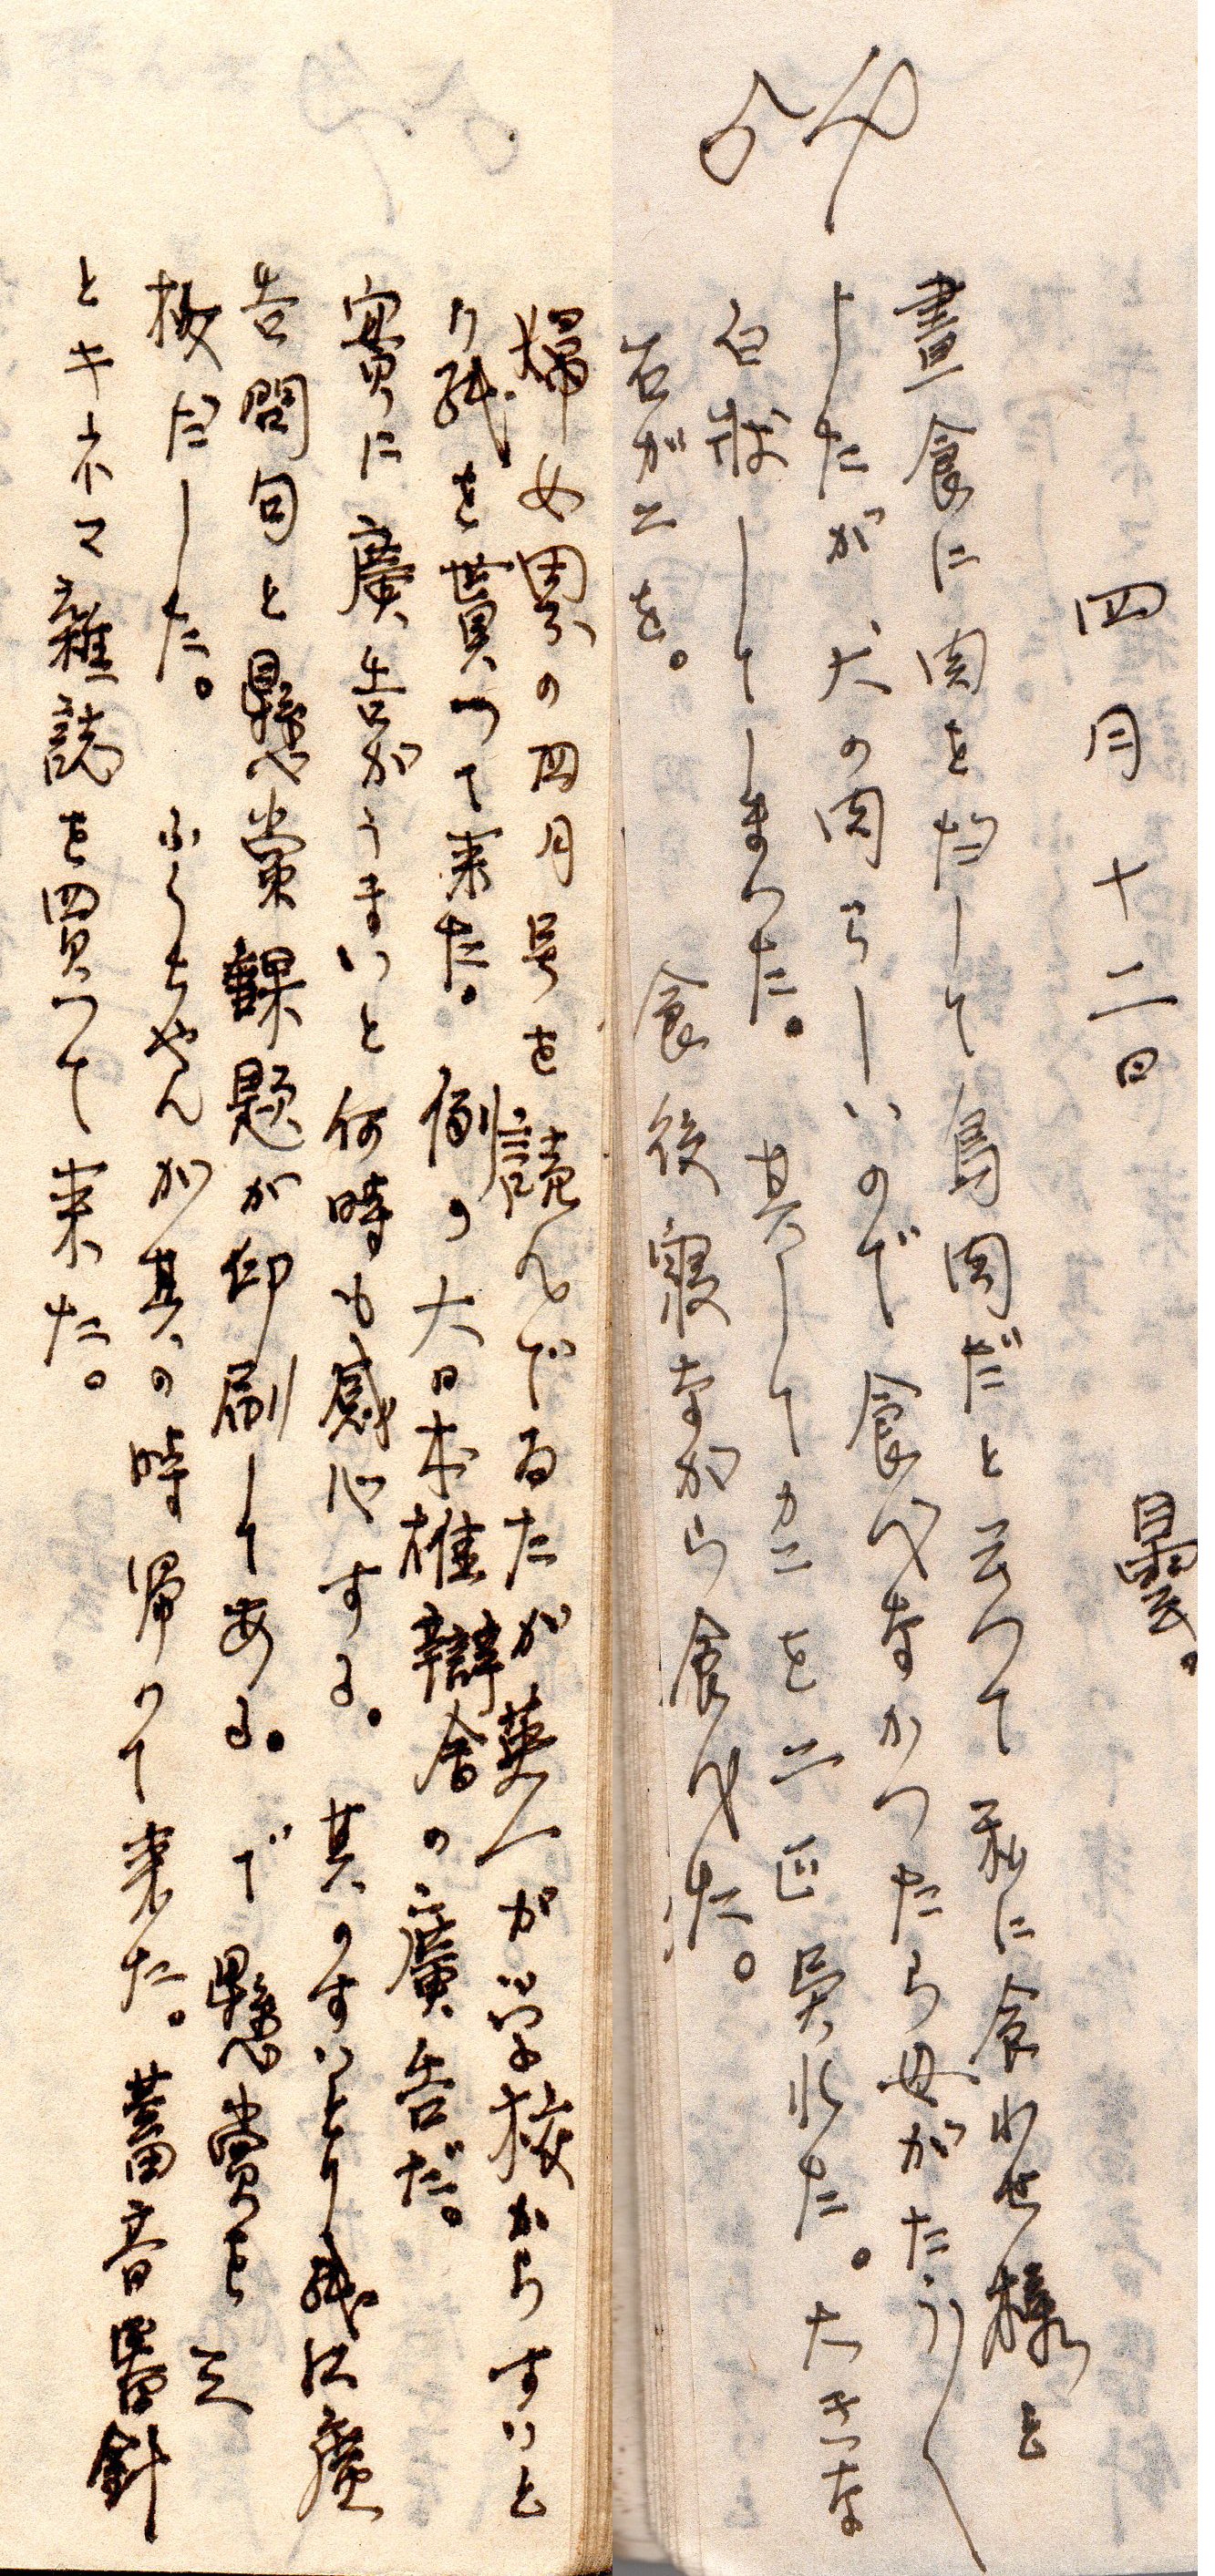 四月十二日 曇。
晝食に肉をだして鳥肉だと云つて私に食わせ様と
したが犬の肉らしいので食べなかつたら母がたう〱
白状してしまつた。其してカニを二匹呉れた。大きな
石ガニを。食後寝ながら食べた。
婦女界の四月号を読んでゐたが英一が学校からすいと
り紙を貰つて来た。例の大日本雄辯会の廣告だ。
實に廣告がうまいと何時も感心する。其のすいとり紙に廣
告問句と懸賞課題が印刷してある。で懸賞を三
枚だした。ふうちやんが其の時帰つて来た。蓄音器針
とキネマ雑誌を買つて来た。